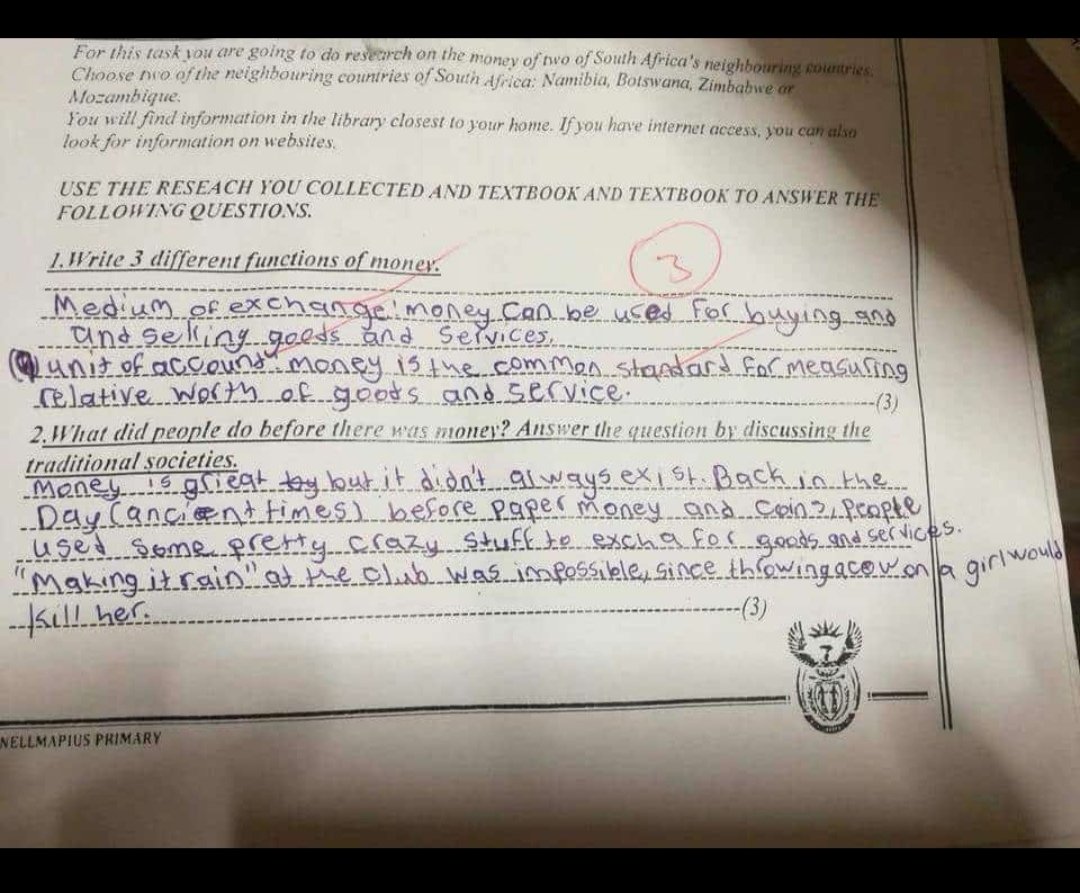 For this task you are going to do research on the money of two of South Africa's neighbouring countries.
Choose two of the neighbouring countries of South Africa: Namibia, Botswana, Zimbabwe or
Mozambique.
You will find information in the library closest to your home. If you have internet access, you can also
look for information on websites.
USE THE RESEACH YOU COLLECTED AND TEXTBOOK AND TEXTBOOK TO ANSWER THE
FOLLOWING QUESTIONS.
1. Write 3 different functions of money.
3
Medium of exchange: money can be used for buying and
and selling goods and services.
unit of account: money is the common standard for measuring
relative worth of goods and service.
(3)
2. What did people do before there was money? Answer the question by discussing the
traditional societies.
Money is grieat but it didn't always exist. Back in the
Day (ancient times) before paper money and coins, people
used some pretty crazy stuff to excha for goods and services.
"Making it rain" at the club was impossible, since throwing a cow on a girl would
kill her.
(3)
7
NELLMAPIUS PRIMARY